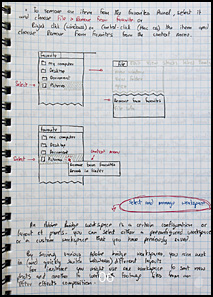 To remove an item from the Favorites Panel, select it
and choose File > Remove from Favorites or
Right click (windows) or Control click (Mac OS) the item and
choose Remove from Favorites from the context menu.
Favorite
My computer
Desktop
Document
Pictures
Select
File
Remove from favorites
Favorite
My computer
Desktop
Document
Pictures
Select
context menu
Remove from favorites
Reveal in Finder
Select and manage workspaces
An Adobe Bridge workspace is a certain configuration or
layout of panels. you can select either a preconfigured workspace
or a custom workspace that you have previously saved.
By saving various Adobe Bridge workspaces, you can work
in (and quickly switch between) different layouts.
For instance you might use one workspace to sort new
photos and another to work with footage files from an
After effects composition.